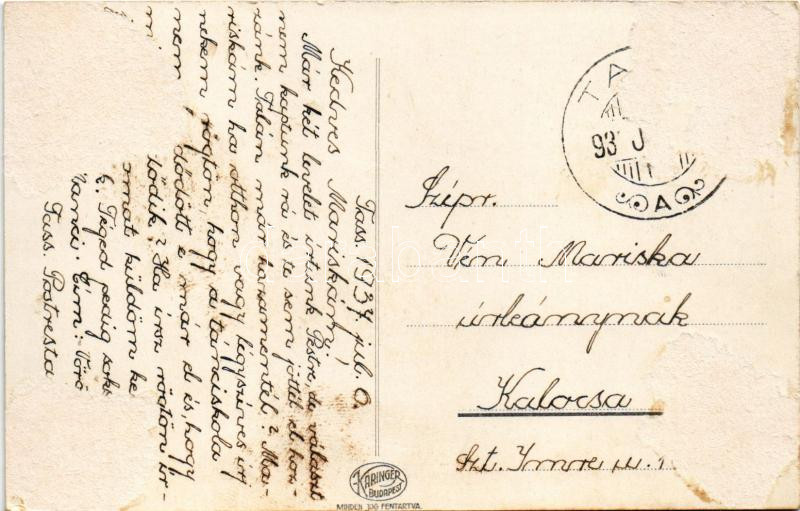 Tass. 1937. júl. 6.
Kedves Mariskám!
Már két levelet írtunk Pestre, de választ
nem kaptunk rá és te sem jöttél el hoz-
zánk. Talán már hazamentél? Ma-
riskám ha otthon vagy légyszíves írj
nekem rögtön, hogy a tánciskola
nem dődött e már el és, hogy
m ződik? Ha írsz rögtön ír-
j.
ormát küldöm he
k. Téged pedig sok
Nanci. Cím: Vörö
Tass. Postresta
TA
937 J
A
Szépr.
Vén Mariska
úrleánynak
Kalocsa
Szt. Imre u. 1
KARINGER
BUDAPEST
MINDEN JOG FENTARTVA.